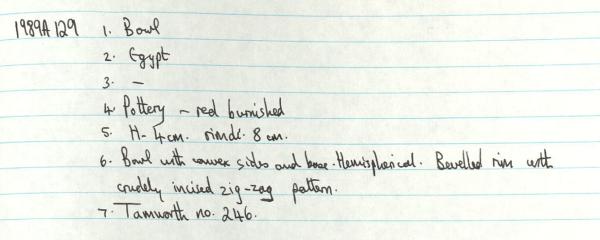 1989A129 1. Bowl
2. Egypt
3. –
4. Pottery – red burnished
5. H- 4cm. rimdi. 8 cm.
6. Bowl with convex sides and base. Hemispherical. Bevelled rim with
crudely incised zig-zag pattern.
7. Tamworth no. 246.